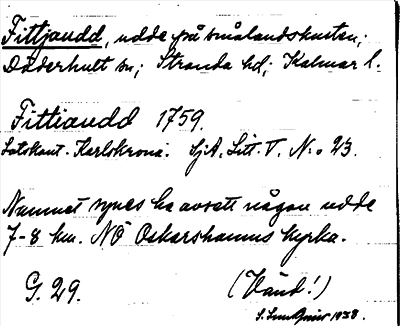 Fittjaudd, udde på smålandskusten;
Döderhult sn; Stranda hd; Kalmar l.
Fittiaudd 1759.
Lotskont. Karlskrona. SjA. Litt. T. N:o 23.
Namnet synes ha avsett någon udde
7-8 km. NÖ Oskarshamns kyrka.
G. 29. (Vänd!)
1938.